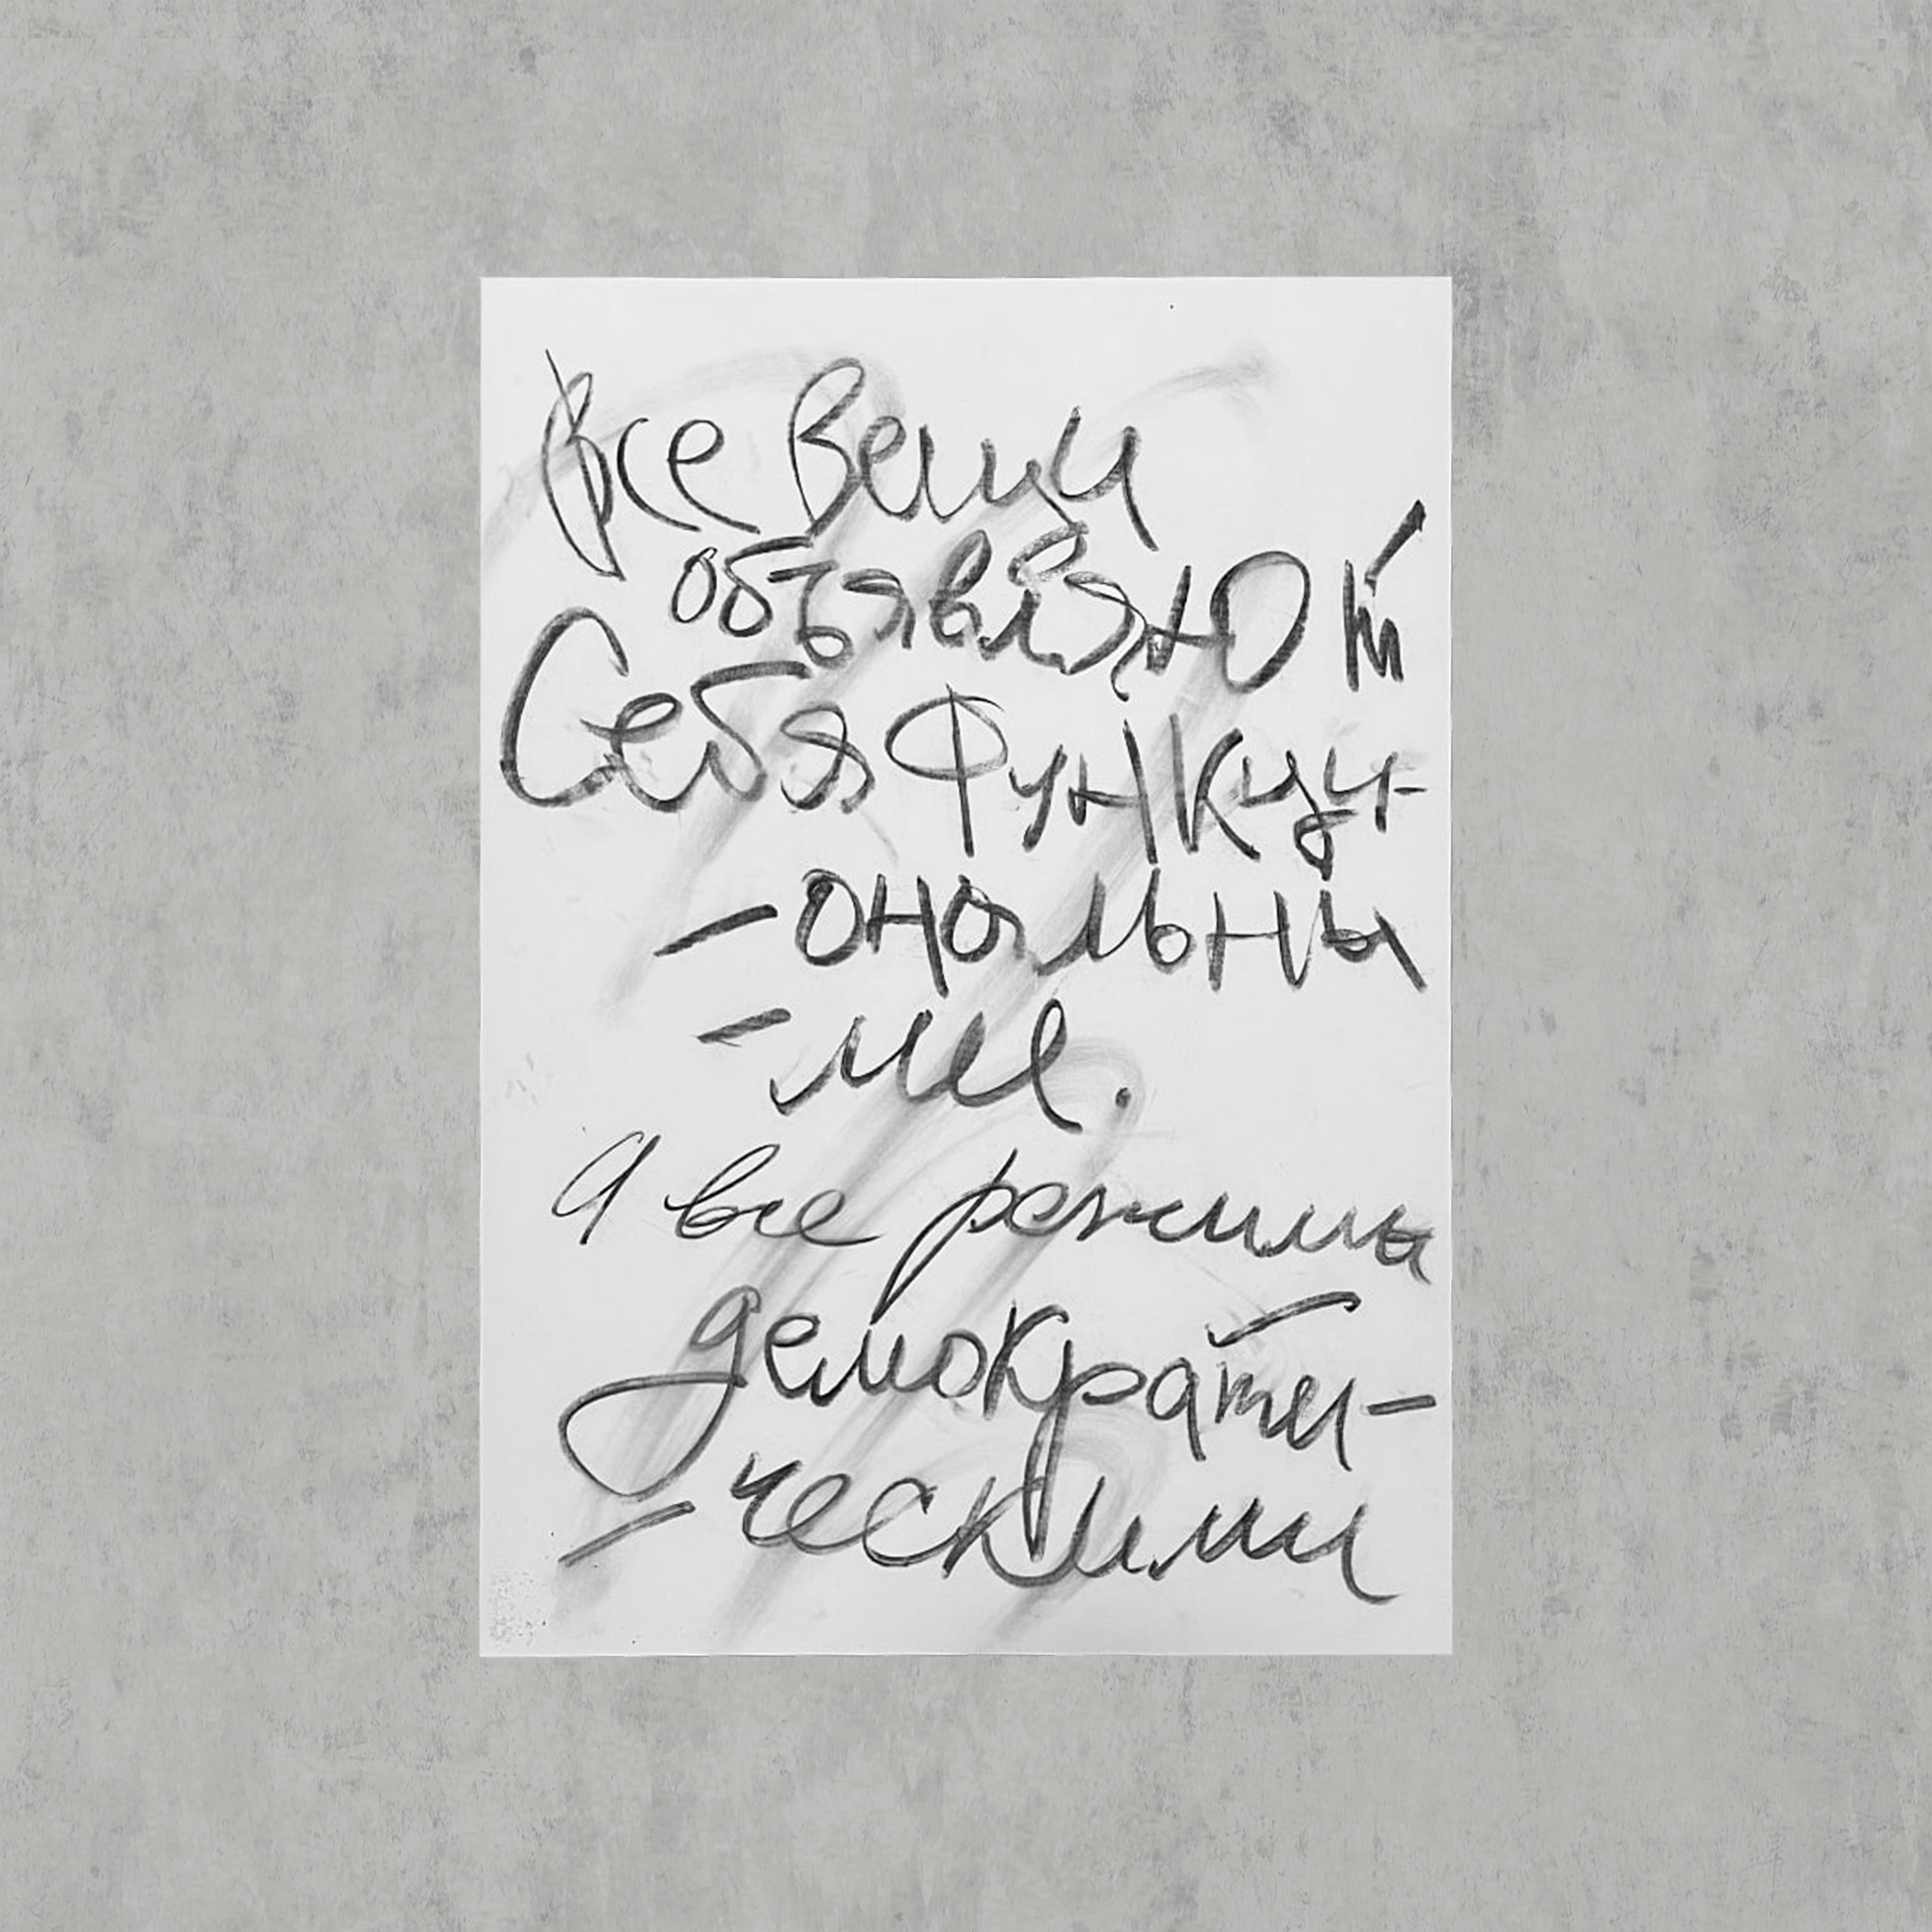 Все Вещи
объявляют
Себя Функци-
-ональны
-ми.
А все режимы
демократи-
-ческими